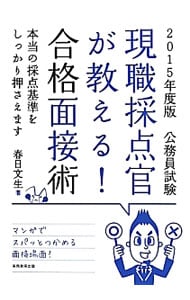 2015年度版 公務員試験
現職採点官
が教える!
合格面接術
本当の採点基準を
しっかり押さえます
春日文生 著
マンガで
スパッとつかめる
面接場面!
実務教育出版